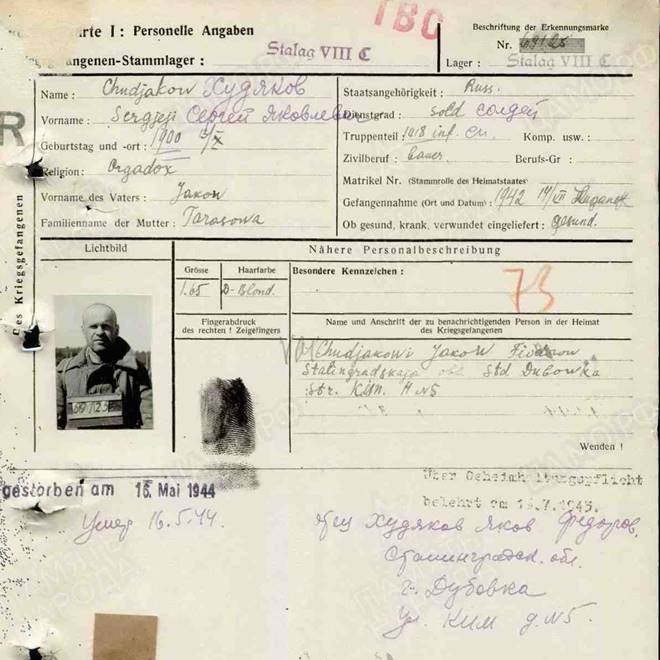 arte I : Personelle Angaben
ТВС
Beschriftung der Erkennungsmarke
Nr. 69125
efangenen-Stammlager : Stalag VIII C
Lager : Stalag VIII C
Name : Chudjakow Худяков
Vorname : Sergjeji Сергей Яковлев
Geburtstag und -ort : 1900 /X
Religion : Orgadox
Vorname des Vaters : Jakow
Familienname der Mutter : Tarasowa
Staatsangehörigkeit : Russ.
Dienstgrad : sold солдат
Truppenteil : 1018 inf. Komp. usw. :
Zivilberuf : bauer Berufs-Gr
Matrikel Nr. (Stammrolle des Heimatstaates)
Gefangennahme (Ort und Datum) : 1942 Lugansk
Ob gesund, krank, verwundet eingeliefert : gesund.
R
Des Kriegsgefangenen
Lichtbild
Nähere Personalbeschreibung
Grösse
Haarfarbe
Besondere Kennzeichen :
1.65
D-Blond.
73
Fingerabdruck
des rechten ! Zeigefingers
Name und Anschrift der zu benachrichtigenden Person in der Heimat
des Kriegsgefangenen
Chudjakowi Jakow
Stalingradskaja obl Std Dubowka
Str. Kim. H N5
Wenden !
gestorben am 16. Mai 1944
Über Geheimhaltungspflicht
belehrt am 19.7.1943.
Умер 16.5.44.
отец Худяков Яков Федоров.
Сталинградск. обл.
г. Дубовка
Ул. Ким д. N5.